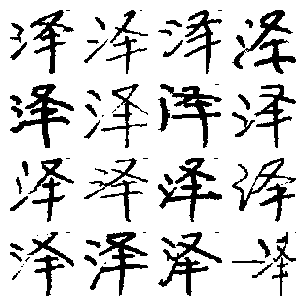 泽泽泽泽
泽泽泽泽
泽泽泽泽
泽泽泽泽